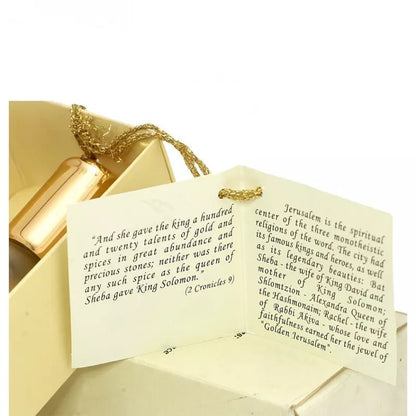 "And she gave the king a hundred
and twenty talents of gold and
spices in great abundance and
precious stones; neither was there
any such spice as the queen of
Sheba gave King Solomon.
(2 Cronicles 9)
Jerusalem is the spiritual
center of the three monotheistic
religions of the word. The city had
its famous kings and heroes, as well
as its legendary beauties: Bat
Sheba - the wife of King David and
mother of King Solomon;
Shlomtzion - Alexandra Queen of
the Hashmonaim; Rachel - the wife
of Rabbi Akiva - whose love and
faithfulness earned her the jewel of
"Golden Jerusalem".